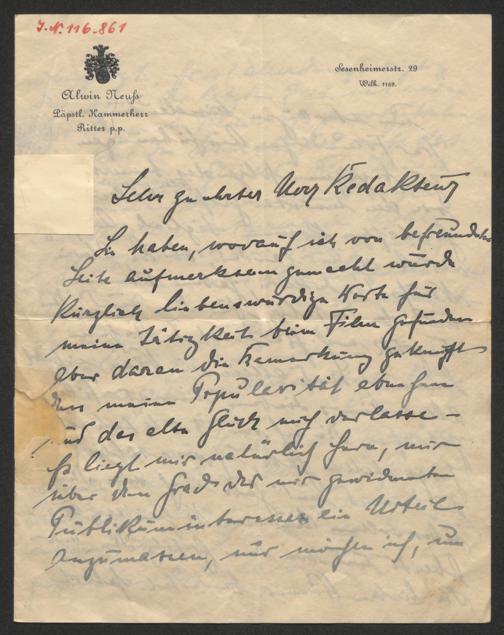 J.N. 116.861
Alwin Neuß
Päpstl. Kammerherr
Ritter p.p.
Sesenheimerstr. 29
Wilh. 1168.
Sehr geehrter Herr Redakteur
Sie haben, worauf ich von befreundeter
Seite aufmerksam gemacht wurde
kürzlich liebenswürdige Worte für
meine Tätigkeit beim Film gefunden
aber daran die Bemerkung geknüpft
dass meine Popularität abnehme
und das alte Glück mich verlasse –
Es liegt mir natürlich fern, mir
über den Grad des mir gewidmeten
Publikuminteresses ein Urteil
anzumassen, nur möchte ich, um